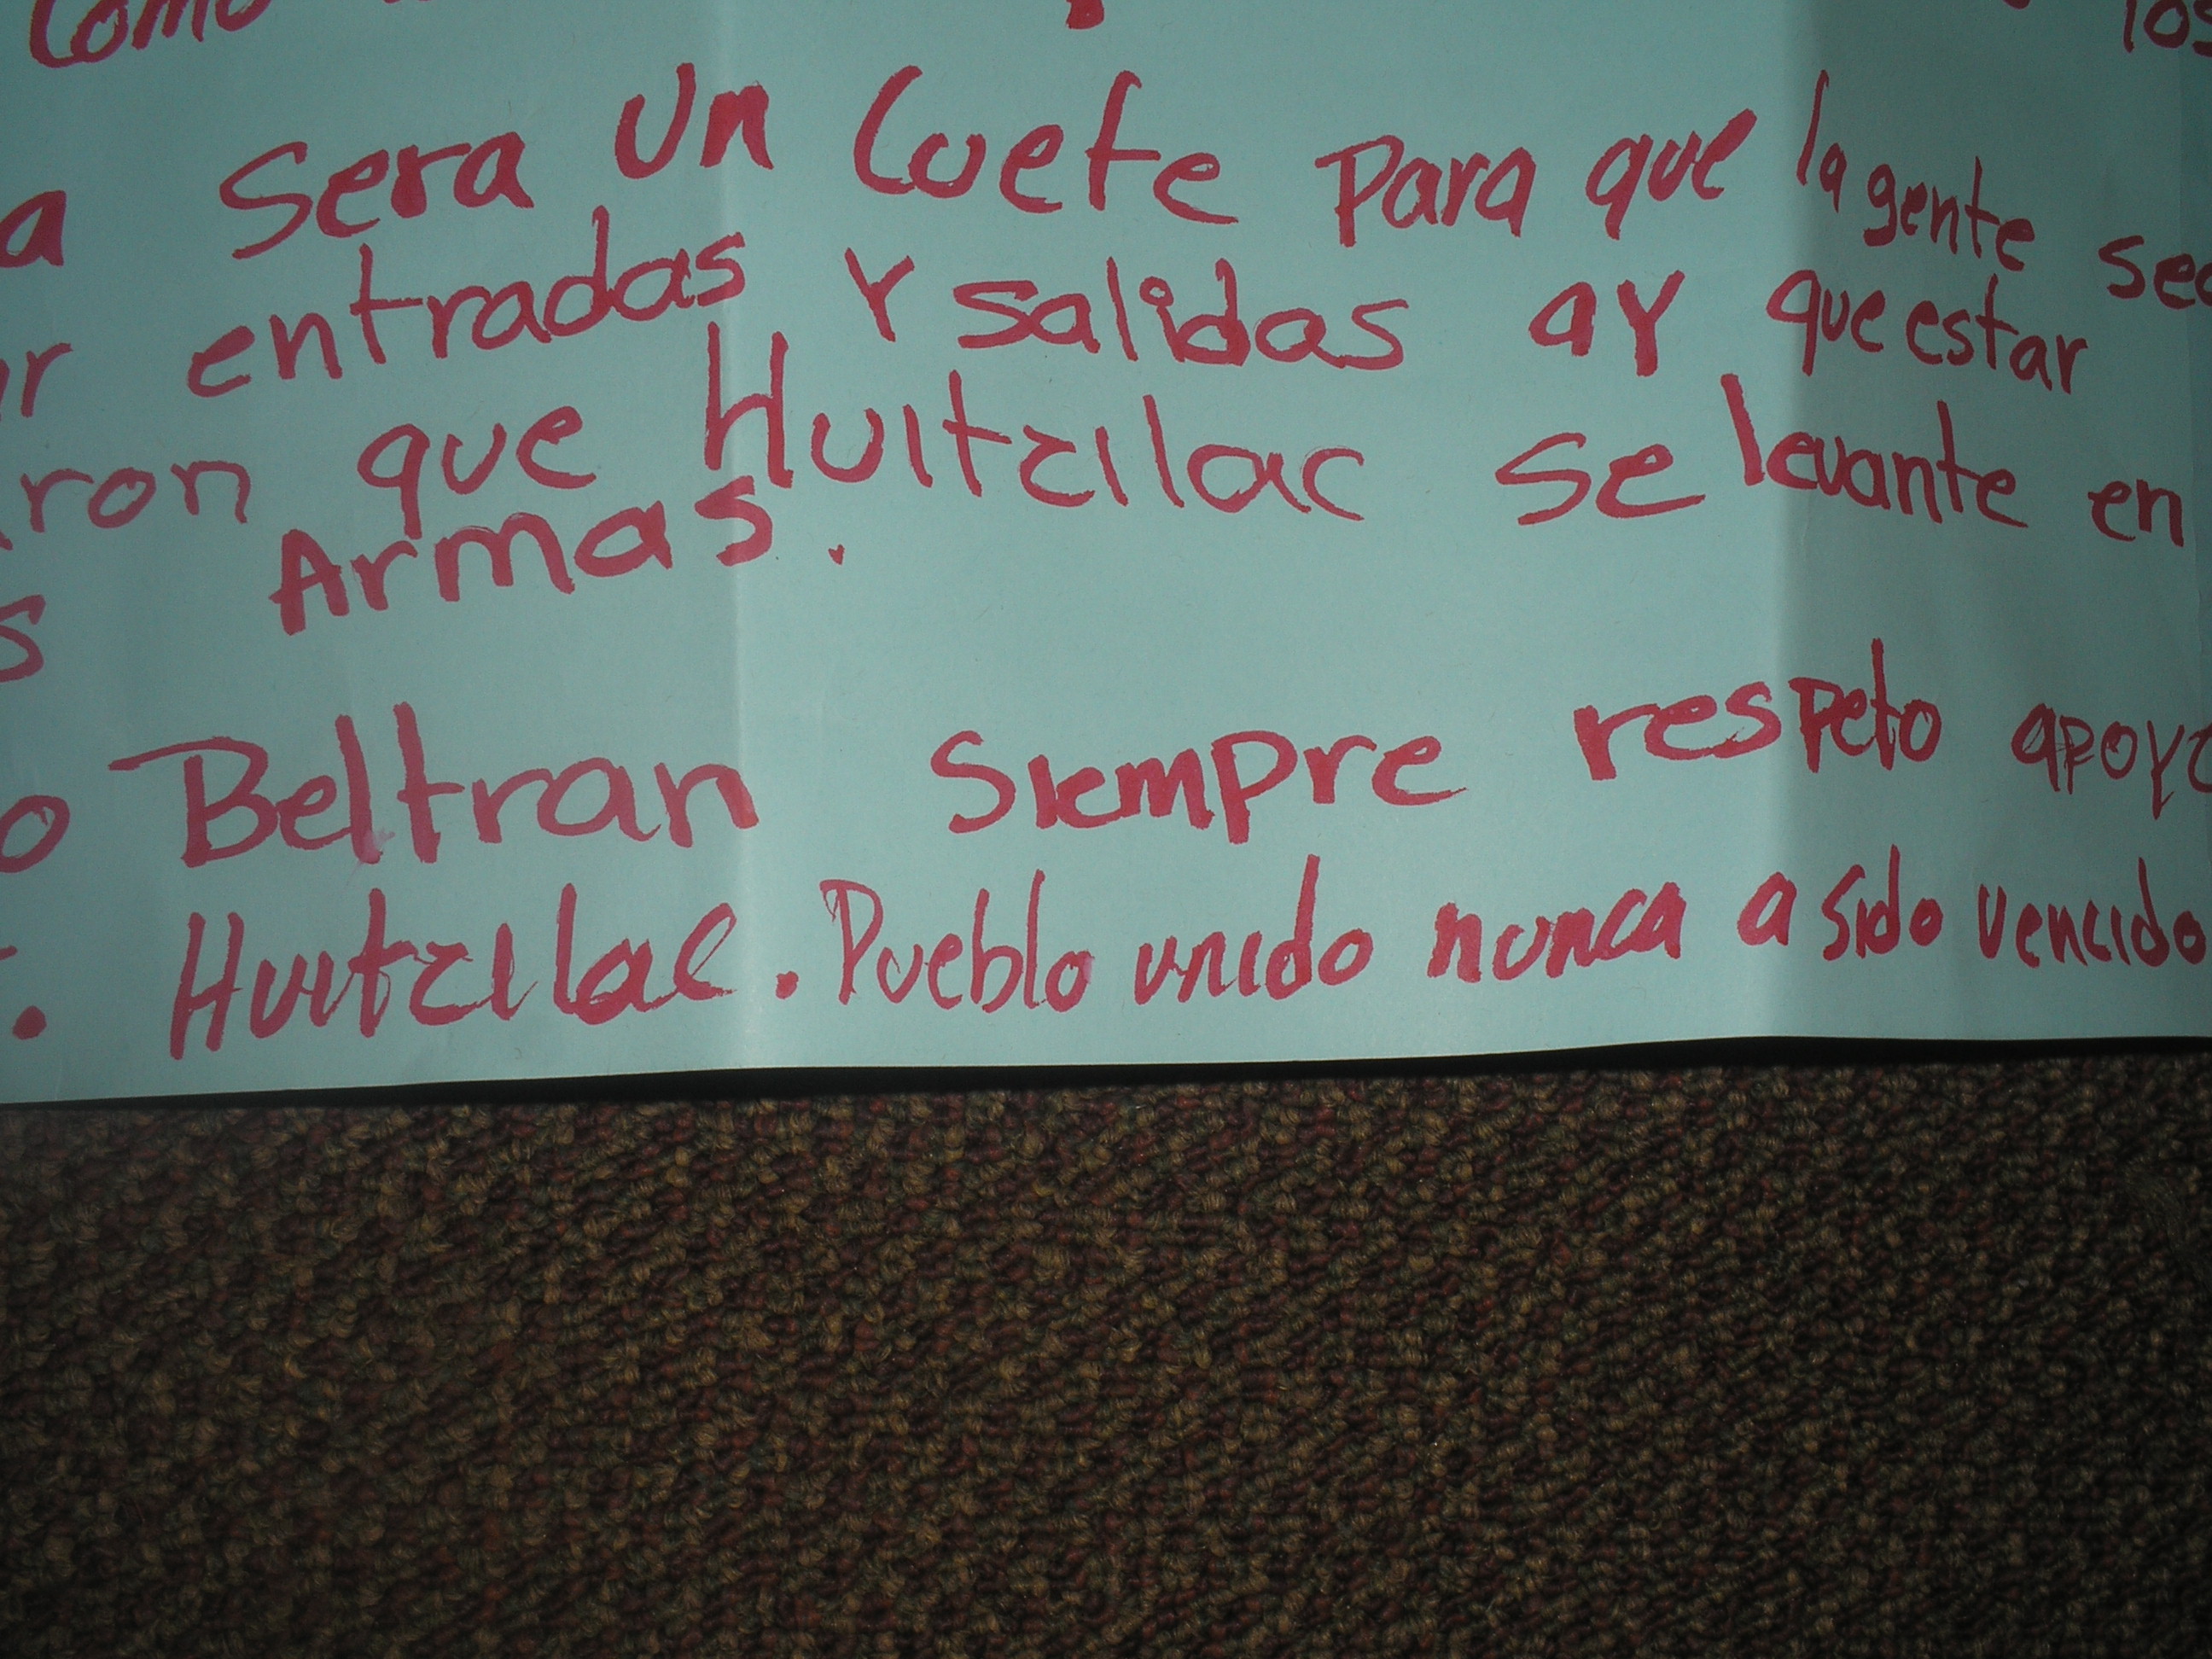 como los
a sera un cuete para que la gente sea
ar entradas y salidas ay que estar
ron que Huitzilac se levante en
s Armas.
o Beltran siempre respeto apoyo
. Huitzilac. Pueblo unido nunca a sido vencido